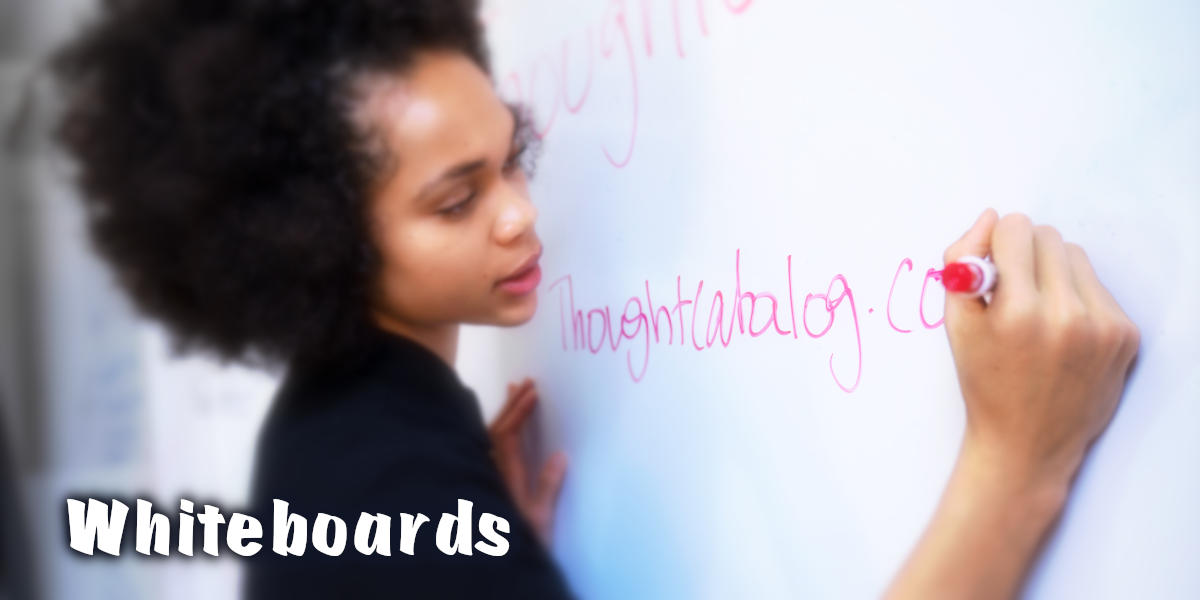 ThoughtCatalog.co
Whiteboards